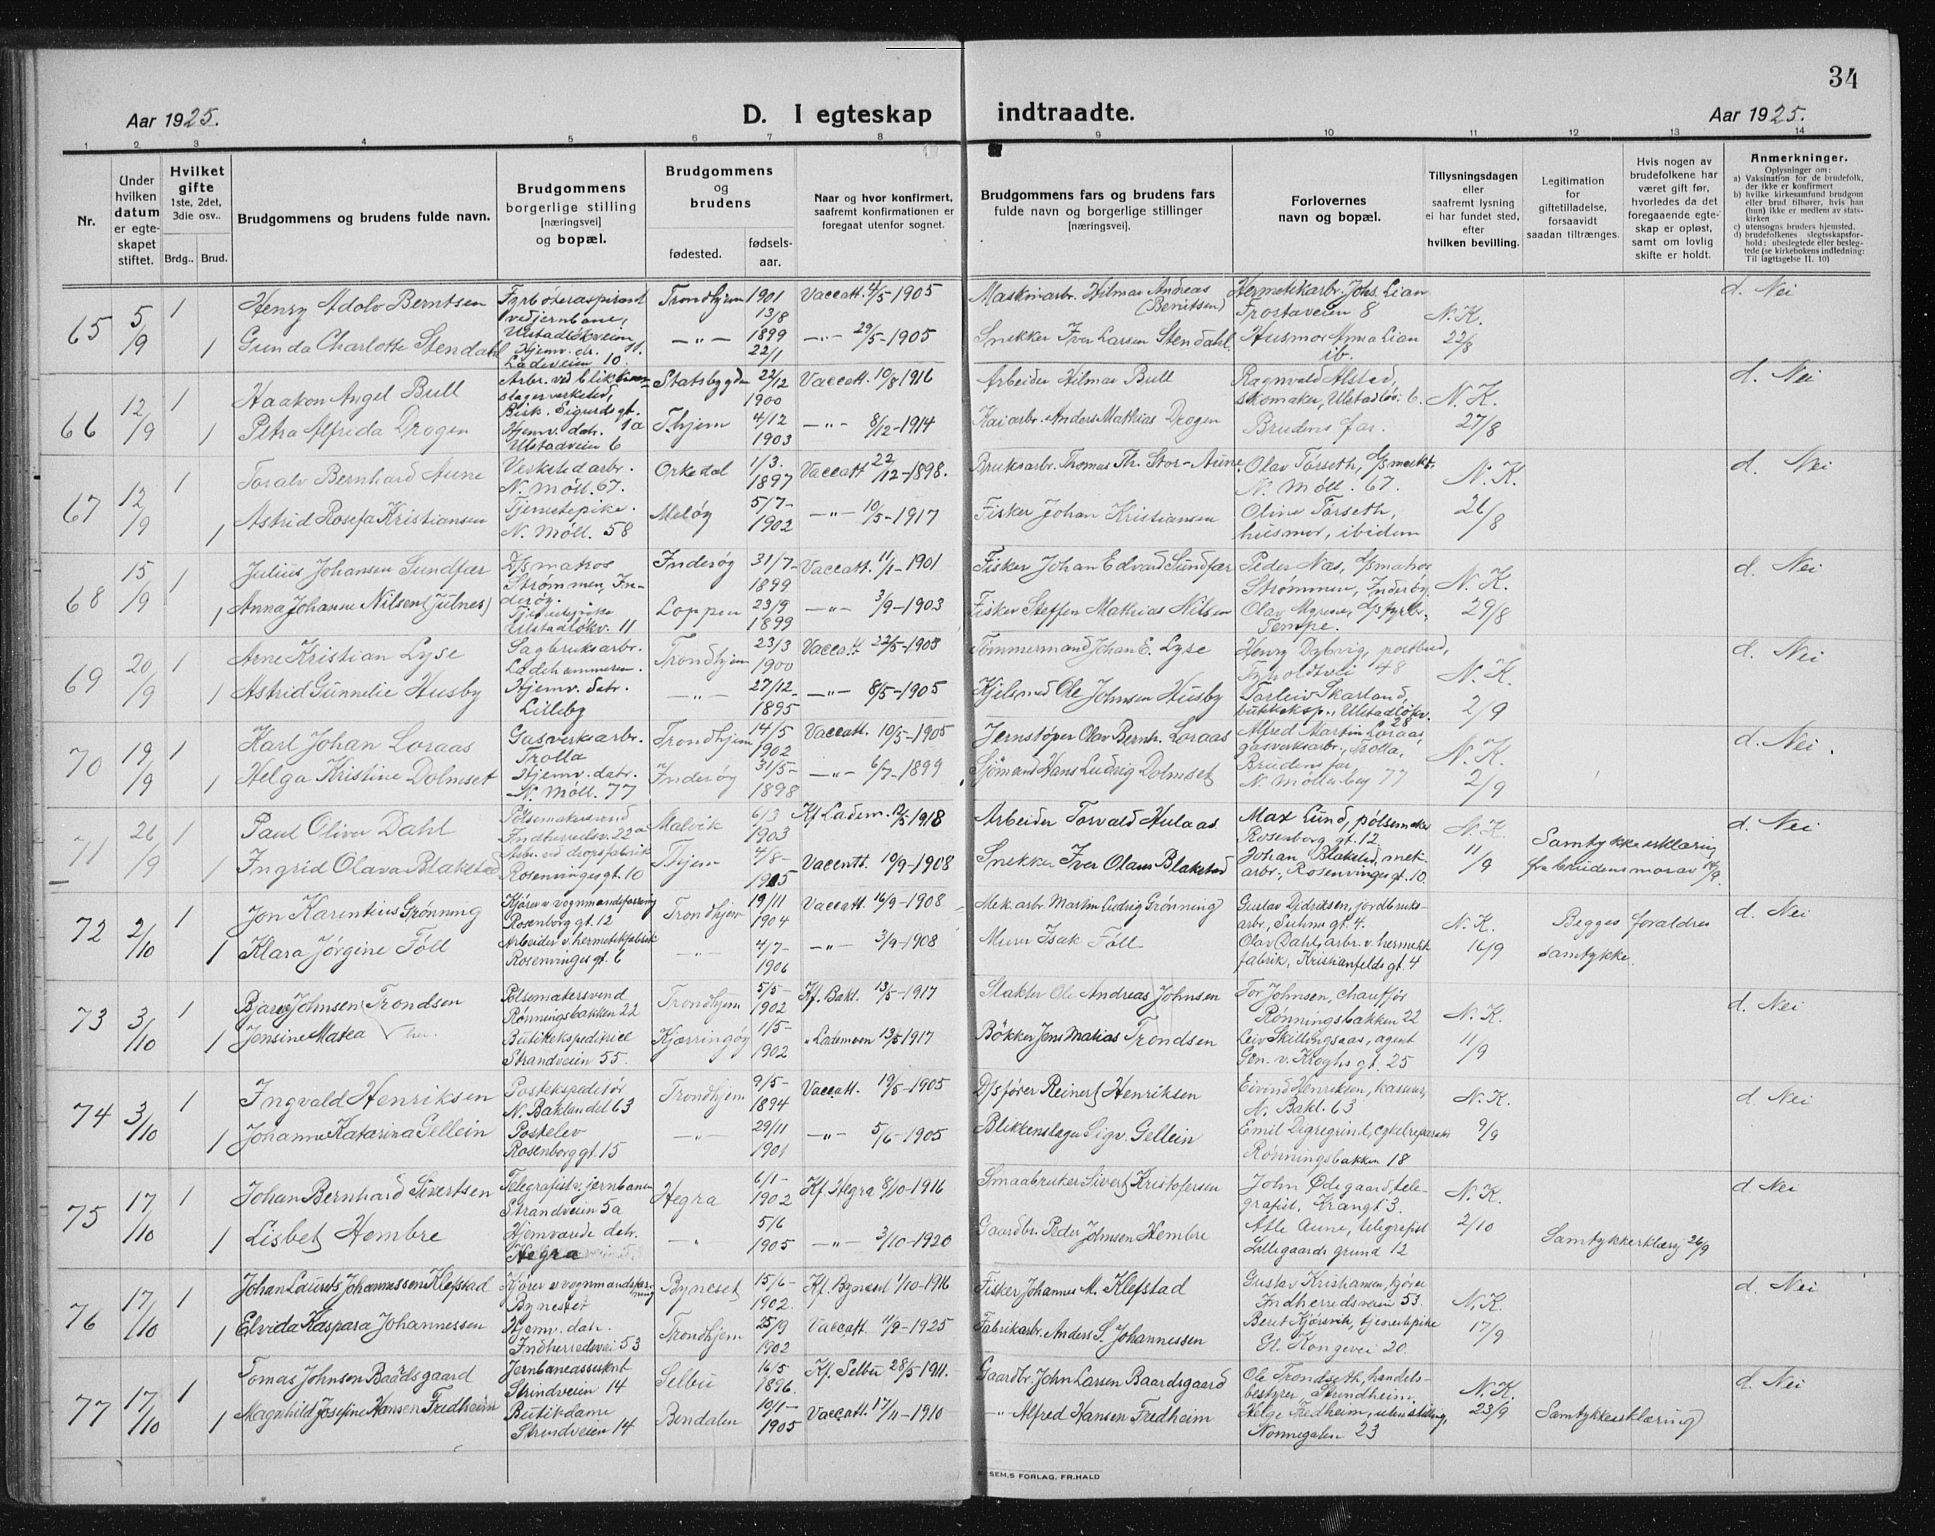 34
Aar 1925.
D. I egteskap indtraadte.
Aar 1925.
1 2 3 4 5 6 7 8 9 10 11 12 13 14
Nr.
Under hvilken datum er egteskapet stiftet.
Hvilket gifte 1ste, 2det, 3die osv..
Brdg.. Brud.
Brudgommens og brudens fulde navn.
Brudgommens borgerlige stilling [næringsvei] og bopæl.
Brudgommens og brudens
fødested.
fødsels-aar.
Naar og hvor konfirmert, saafremt konfirmationen er foregaat utenfor sognet.
Brudgommens fars og brudens fars fulde navn og borgerlige stillinger [næringsvei].
Forlovernes navn og bopæl.
Tillysningsdagen eller saafremt lysning ei har fundet sted, efter hvilken bevilling.
Legitimation for giftetilladelse, forsaavidt saadan tiltrænges.
Hvis nogen av brudefolkene har været gift før, hvorledes da det foregaaende egteskap er opløst, samt om lovlig skifte er holdt.
Anmerkninger.
Oplysninger om:
a) Vaksination for de brudefolk, der ikke er konfirmert
b) hvilke kirkesamfund brudgom eller brud tilhører, hvis han (hun) ikke er medlem av statskirken
c) utensogns bruders hjemsted.
d) brudefolkenes slegtsskapsforhold: ubeslegtede eller beslegtede (se kirkebokens indledning: Til iagttagelse II. 10)
65 5/9 1 Henry Adolv Berntsen Fyrbøteraspirant ved jernbane, Ulstadløkveien 11. Trondhjem 1901 13/8 Vaccatt. 4/5-1905 Maskinarbr. Hilmar Andreas (Berntsen) Hermetikarbr. Johs. Lian Frostaveien 8 N. K. 22/8 d. Nei
1 Gunda Charlotte Stendahl Hjemv. dr. Ladeveien 10. —„— 1899 22/1 —„— 29/5-1905 Snekker Iver Larsen Stendahl Husmor Anna Lian ib.
66 12/9 1 Haakon Angel Bull Arbr. ved blikkenslagerverksted, Bisk. Sigurds gt. 1a Statsbygden 22/12 1900 Vaccatt. 10/8 1916 Arbeider Hilmar Bull Ragnvald Alstad, skomaker, Ulstadløv. 6. N. K. 27/8 d. Nei
1 Petra Alfrida Drogen Hjemv. datr. Ulstadveien 6 T.hjem 4/12 1903 —„— 8/12-1914 Kaiarbr. Anders Mathias Drogen Brudens far.
67 12/9 1 Toralv Bernhard Aune Verkstedarbr. N. Møll. 67. Orkedal 1/3. 1897 Vaccatt 22/12-1898. Bruksarbr. Thomas Th. Stor-Aune Olav Tørseth, N. Møll. 67. N. K. 26/8 d. Nei
1 Astrid Rosefa Kristiansen Tjenestepike. N. Møll. 58 Meløy 5/7-1902 —„— 10/5-1917 Fisker Johan Kristiansen Oline Tørseth, husmor, ibidem
68 15/9 1 Julius Johansen Sundfær D/s matros Strømmen, Inderøy. Inderøy 31/7-1899 Vaccatt. 11/1-1901 Fisker Johan Edvard Sundfær Peder Næs, d/s matros Strømmen, Inderøy. N. K. 29/8 d. Nei
1 Anna Johanne Nilsen (Julnes) Tjenestepike Ulstadløkv. 11 Loppen 23/9 1899 —„— 3/9-1903 Fisker Steffen Mathias Nilsen Olav Myrene, d/s fyrbr. Tempe.
69 20/9 1 Arne Kristian Lyse Sagbruksarbr. Ladehammeren. Trondhjem 23/3 1900 Vaccatt. 22/5-1903 Tømmermand Johan E. Lyse Henry Dybvig, postbud, Tyholdtvei 48 N. K. 2/9 d. Nei
1 Astrid Gunnelie Husby Hjemv. datr. Lilleby —„— 27/12-1895 —„— 8/5-1905 Kjelsmed Ole Johnsen Husby Torleiv Skarland, butikeksp., Ulstadløkv. 28
70 19/9 1 Karl Johan Loraas Gasverksarbr. Trolla Trondhjem 14/5 1902 Vaccatt. 10/5-1905 Jernstøper Olav Bernh. Loraas Alfred Martin Loraas, gasverksarbr., Trolla, N. K. 2/9 d. Nei.
1 Helga Kristine Dolmset Hjemv. datr. N. Møll. 77 Inderøy 31/5-1898 —„— 6/7-1899 Sjømand Hans Ludvig Dolmset Brudens far, N. Møllenberg 77
71 26/9 1 Paul Oliver Dahl Pølsemakersvend Indherredsv. 22a Malvik 6/3 1903 Kf Ladem. 12/5-1918 Arbeider Torvald Hulaas Max Lund, pølsemaker Rosenborg gt. 12 N. K. 11/9 Samtykkeerklæring fra brudens mor av 14/9. d. Nei
1 Ingrid Olava Blakstad Arbr. ved dropsfabrik Rosenvinges gt. 10 T.hjem 4/8-1905 Vaccatt. 19/9-1908 Snekker Iver Olaus Blakstad Johan Blakstad, met.arbr., Rosenvinges gt. 10
72 2/10 1 Jon Karentius Grønning Kjører v vognmandsforretning Rosenborg gt. 12 Trondhjem 19/11 1904 Vaccatt. 16/9-1908 Mek. arbr. Martin Ludvig Grønning Gustav Didriksen, jordbruksarbr., Suhms gt. 4. N. K. 16/9 Begges foraldres samtykke. d. Nei
1 Klara Jørgine Föll Arbeider v. hermetikfabrik Rosenvinges gt. 6 —„— 4/7-1906 —„— 3/9-1908 Murer Isak Föll Olav Dahl, arbr. v. hermetikfabrik, Kristianfelds gt. 4
73 3/10 1 Bjarne Johnsen Trondsen Pølsemakersvend Rønningsbakken 22 Trondhjem 5/5-1902 Kf. Bakl. 13/5-1917 Slakter Ole Andreas Johnsen Tor Johnsen, chauffør Rønningsbakken 22 N. K. 11/9 d. Nei
1 Jensine Matea Butikekspeditrice Strandveien 55. Kjærringøy 1/5-1902 „ Lademoen 13/5-1917 Bøkker Jens Matias Trondsen Leiv Skillingsaas, agent Gen. v. Kroghs gt. 25
74 3/10 1 Ingvald Henriksen Postekspeditør N. Baklandet 63 Trondhjem 9/5-1894 Vaccatt. 19/5-1905 D/s fører Reinert Henriksen Eivind Henriksen, kasserer, N. Bakl. 63 N. K. 9/9 d. Nei
1 Johanne Katarina Gellein Postelev Rosenborg gt. 15 —„— 29/11 1901 —„— 5/6-1905 Blikkenslager Sigv. Gellein Emil Digregrind, cykelreparatør Rønningsbakken 18
75 17/10 1 Johan Bernhard Sivertsen Telegrafist v. jernbanen Strandveien 5a Hegra 6/1-1902 Kf. Hegra 8/10-1916 Smaabruker Sivert Kristofersen John Ødegaard, telegrafist, Krangt 3. N. K. 2/10 d. Nei
1 Lisbet Hembre Hjemværende datr. Hegra —„— 5/6 1905 —„— 3/10-1920 Gaardbr. Peder Johnsen Hembre Atle Aune, telegrafist Lillegaards grund 12 Samtykkerklærg 26/9
76 17/10 1 Johan Laurits Johannessen Klefstad Kjører v vognmandsforretning Bynesset Byneset 15/6-1902. Kf. Bynesset 1/10-1916 Fisker Johannes M. Klefstad Gustav Kristiansen, kjører Indherredsveien 53. N. K. 17/9 d. Nei
1 Elvida Kaspara Johannessen Hjemv. datr. Indherredsvei 53 Trondhjem 25/9 1902 Vaccatt. 11/9-1925 Fabrikarbr. Anders S. Johannessen Beret Kjørsvik, tjenestepike El. Kongevei 20.
77 17/10 1 Tomas Johnsen Baardsgaard Jernbaneassistent Strindveien 14 Selbu 16/5 1896. Kf. Selbu 28/5-1911. Gaardbr. John Larsen Baardsgaard Ole Trondseth, handelsbestyrer, Strindheim N. K. 23/9 d. Nei
1 Magnhild Josefine Hansen Fredheim Butikdame Strindveien 14 Bendalen 10/1-1905 Vaccatt. 17/11-1910 —„— Alfred Hansen Fredheim Helge Fredheim, uten stilling, Nonnegaten 23 Samtykkeerklæring
SEM.S FORLAG, FR.HALD